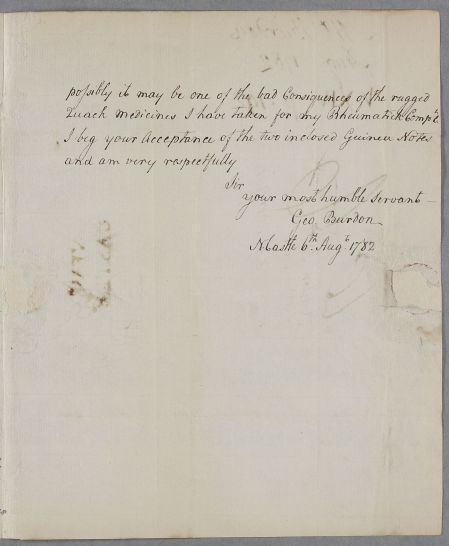 possibly it may be one of the bad Consiquences of the rugged
Quack medicines I have taken for my Rheumatick Compt
I beg your Acceptance of the two inclosed Guinea Notes
and am very respectfully
Sir
your most humble Servant
Geo. Burdon
NCastle 6th Augt 1782